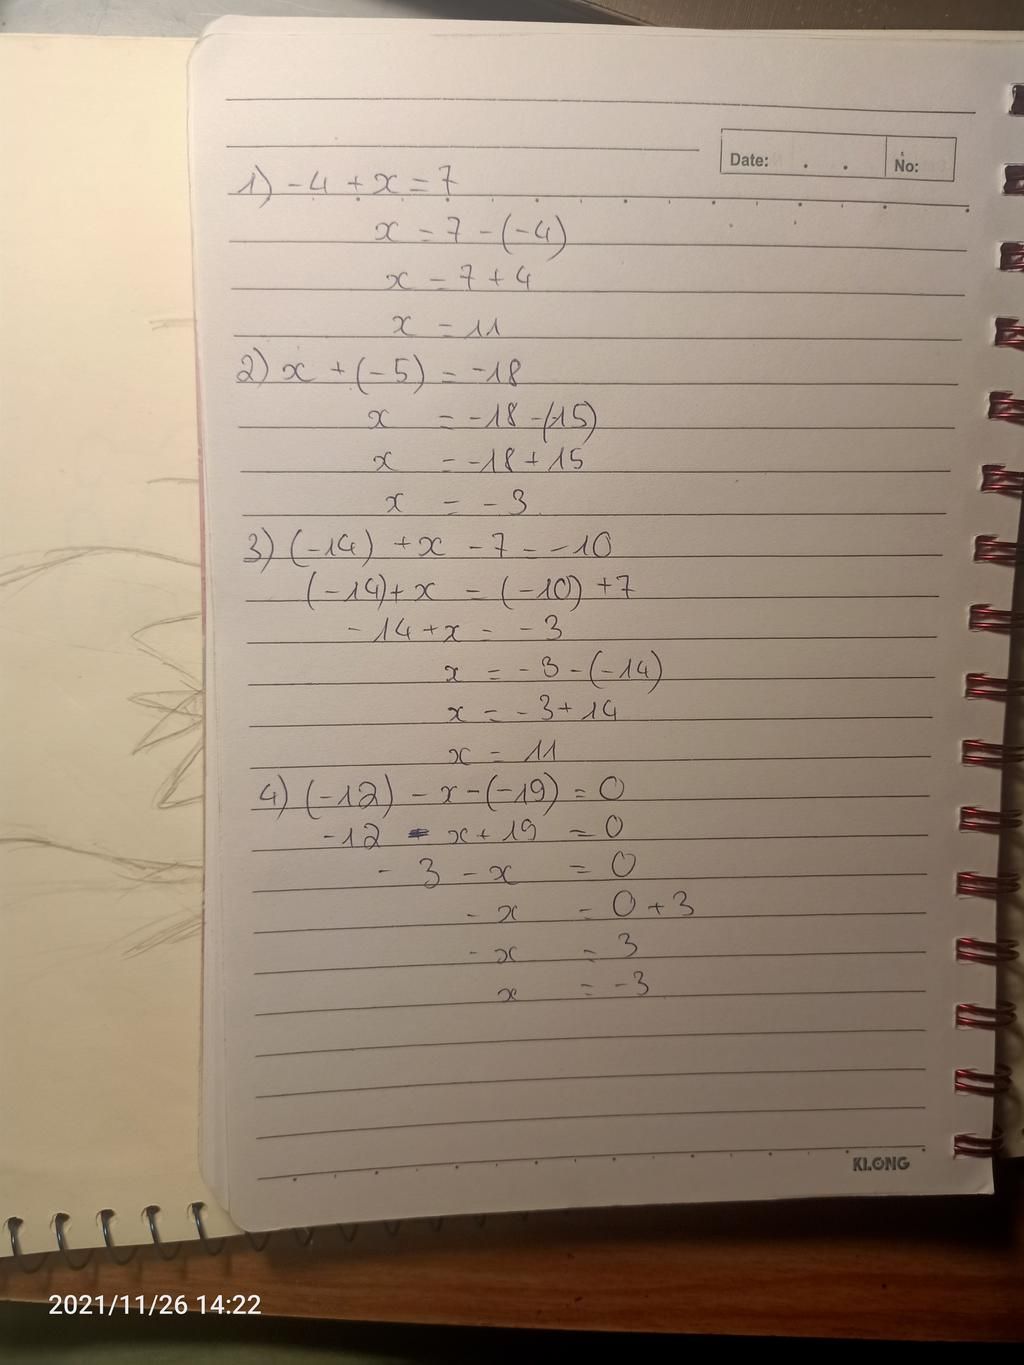 Date: . .
No:
1) -4 + x = 7
x = 7 - (-4)
x = 7 + 4
x = 11
2) x + (-5) = -18
x = -18 - (15)
x = -18 + 15
x = -3
3) (-14) + x - 7 = -10
(-14) + x = (-10) + 7
-14 + x = -3
x = -3 - (-14)
x = -3 + 14
x = 11
4) (-12) - x - (-19) = 0
-12 - x + 19 = 0
- 3 - x = 0
- x = 0 + 3
- x = 3
x = -3
KLONG
2021/11/26 14:22